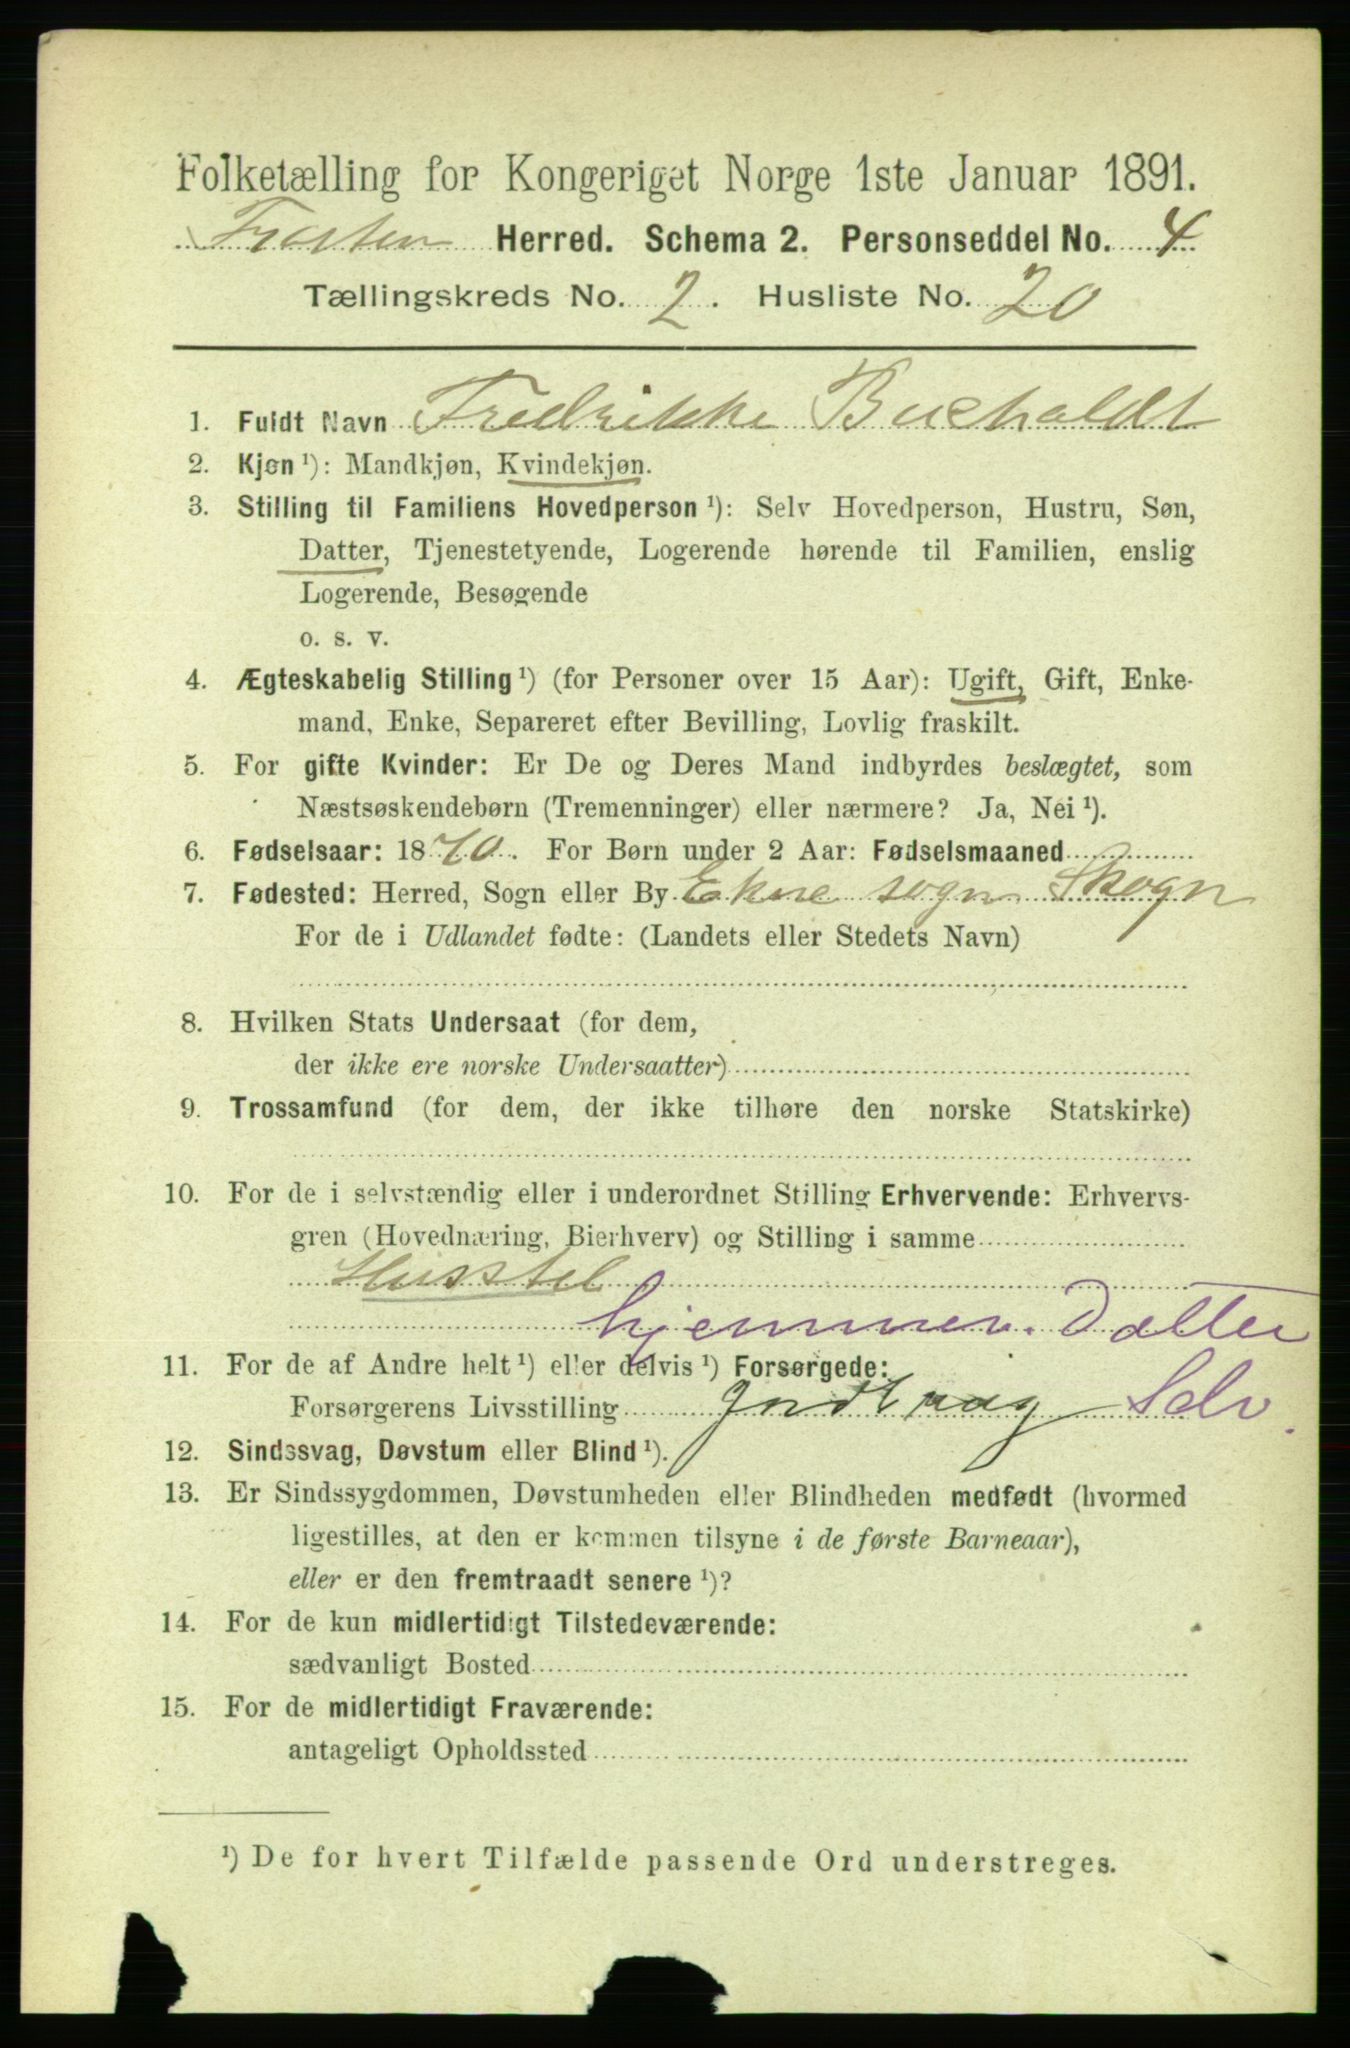 Folketælling for Kongeriget Norge 1ste Januar 1891.
Frosten Herred. Schema 2. Personseddel No. 4
Tællingskreds No. 2. Husliste No. 20
1. Fuldt Navn Fredrikke Bucholdt
2. Kjøn ¹): Mandkjøn, Kvindekjøn.
3. Stilling til Familiens Hovedperson ¹): Selv Hovedperson, Hustru, Søn,
Datter, Tjenestetyende, Logerende hørende til Familien, enslig
Logerende, Besøgende
o. s. v.
4. Ægteskabelig Stilling ¹) (for Personer over 15 Aar): Ugift, Gift, Enke-
mand, Enke, Separeret efter Bevilling, Lovlig fraskilt.
5. For gifte Kvinder: Er De og Deres Mand indbyrdes beslægtet, som
Næstsøskendebørn (Tremenninger) eller nærmere? Ja, Nei ¹).
6. Fødselsaar: 1870. For Børn under 2 Aar: Fødselsmaaned
7. Fødested: Herred, Sogn eller By Ekne sogn Skogn
For de i Udlandet fødte: (Landets eller Stedets Navn)
8. Hvilken Stats Undersaat (for dem,
der ikke ere norske Undersaatter)
9. Trossamfund (for dem, der ikke tilhøre den norske Statskirke)
10. For de i selvstændig eller i underordnet Stilling Erhvervende: Erhvervs-
gren (Hovednæring, Bierhverv) og Stilling i samme
Husstel
hjemmev. Datter
11. For de af Andre helt ¹) eller delvis ¹) Forsørgede:
Forsørgerens Livsstilling Selv.
12. Sindssvag, Døvstum eller Blind ¹).
13. Er Sindssygdommen, Døvstumheden eller Blindheden medfødt (hvormed
ligestilles, at den er kommen tilsyne i de første Barneaar),
eller er den fremtraadt senere ¹)?
14. For de kun midlertidigt Tilstedeværende:
sædvanligt Bosted
15. For de midlertidigt Fraværende:
antageligt Opholdssted
¹) De for hvert Tilfælde passende Ord understreges.